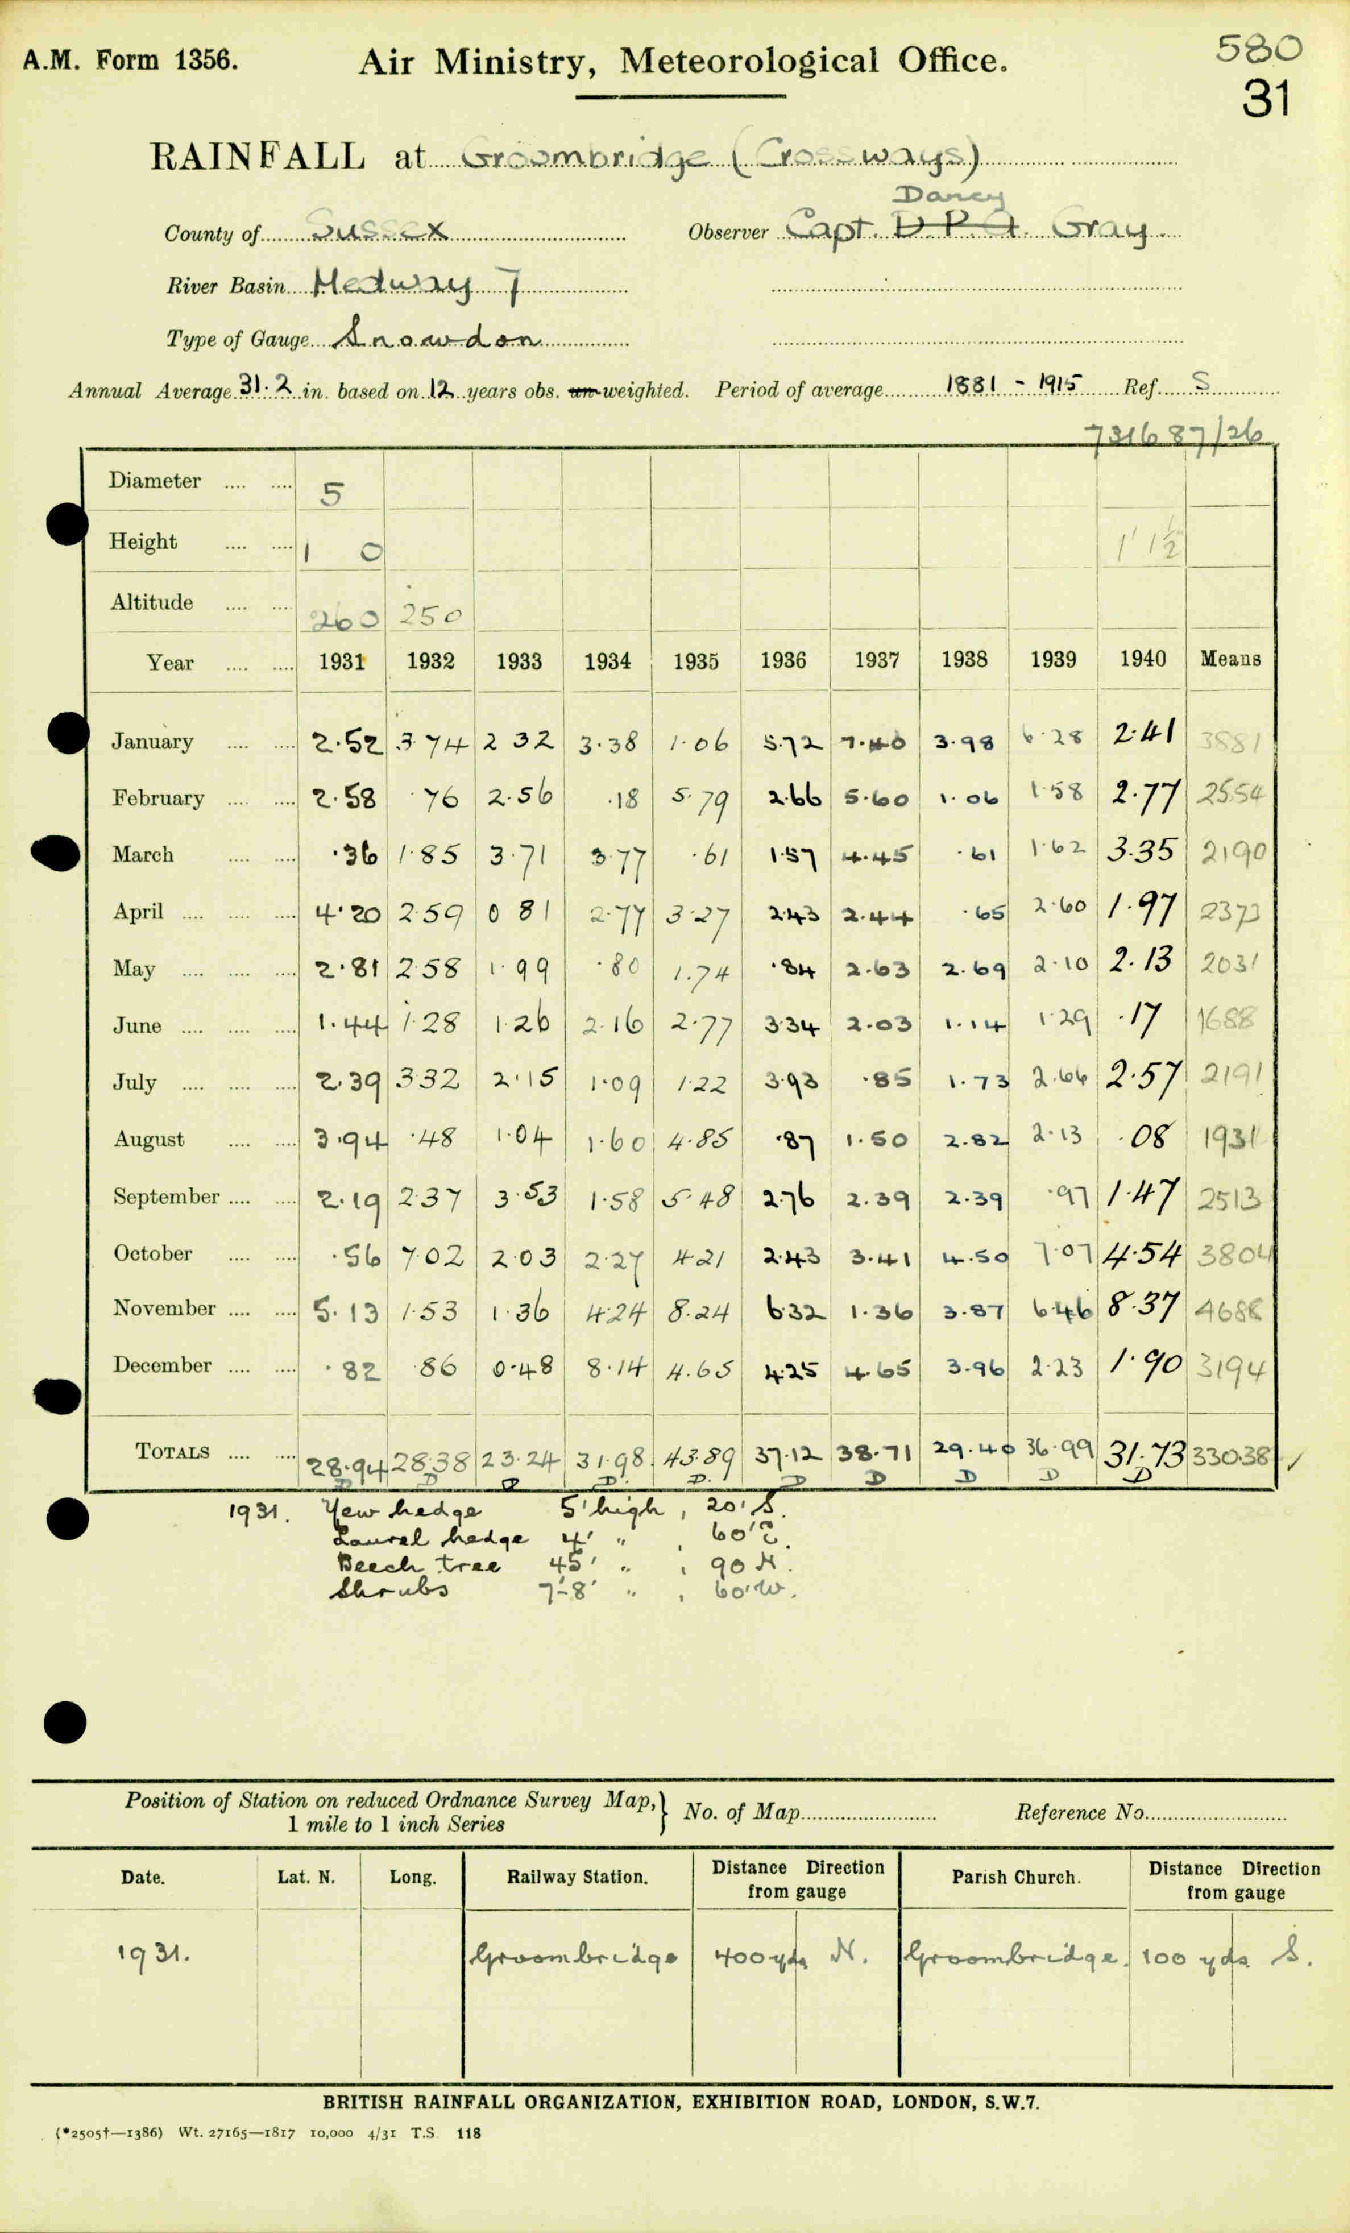 A.M. Form 1356.
Air Ministry, Meteorological Office.
580
31
RAINFALL at Groombridge (Crossways)
Darcy
County of Sussex Observer Capt. D.P.A. Gray.
River Basin Medway 7
Type of Gauge Snowdon
Annual Average 31.2 in. based on 12 years obs. un-weighted. Period of average 1881 - 1915 Ref. S
731687/26
Diameter .... .... 5
Height .... .... 1 0 1' 1½
Altitude .... .... 260 250
Year .... .... 1931 1932 1933 1934 1935 1936 1937 1938 1939 1940 Means
January .... .... 2.52 3.74 2 32 3.38 1.06 5.72 7.40 3.98 6.28 2.41 3881
February .... .... 2.58 .76 2.56 .18 5.79 2.66 5.60 1.06 1.58 2.77 2554
March .... .... .36 1.85 3.71 3.77 .61 1.57 4.45 .61 1.62 3.35 2190
April .... .... .... 4.20 2.59 0 81 2.77 3.27 2.43 2.44 .65 2.60 1.97 2373
May .... .... .... 2.81 2.58 1.99 .80 1.74 .84 2.63 2.69 2.10 2.13 2031
June .... .... .... 1.44 1.28 1.26 2.16 2.77 3.34 2.03 1.14 1.29 .17 1688
July .... .... .... 2.39 3.32 2.15 1.09 1.22 3.93 .85 1.73 2.66 2.57 2191
August .... .... 3.94 .48 1.04 1.60 4.85 .87 1.50 2.82 2.13 .08 1931
September .... .... 2.19 2.37 3.53 1.58 5.48 2.76 2.39 2.39 .97 1.47 2513
October .... .... .56 7.02 2.03 2.27 4.21 2.43 3.41 4.50 7.07 4.54 3804
November .... .... 5.13 1.53 1.36 4.24 8.24 6.32 1.36 3.87 6.46 8.37 4688
December .... .... .82 .86 0.48 8.14 4.65 4.25 4.65 3.96 2.23 1.90 3194
TOTALS .... .... 28.94 28.38 23.24 31.98 43.89 37.12 38.71 29.40 36.99 31.73 330.38 ✓
D D D D. D. D D D D D
1931. Yew hedge 5' high, 20' S.
Laurel hedge 4' " , 60' E.
Beech tree 45' " ; 90 N.
Shrubs 7'-8' " , 60' W.
Position of Station on reduced Ordnance Survey Map, } No. of Map Reference No.
1 mile to 1 inch Series
Date. Lat. N. Long. Railway Station. Distance Direction from gauge Parish Church. Distance Direction from gauge
1931. Groombridge 400 yds N. Groombridge. 100 yds S.
BRITISH RAINFALL ORGANIZATION, EXHIBITION ROAD, LONDON, S.W.7.
(*2505†—1386) Wt. 27165—1817 10,000 4/31 T.S. 118